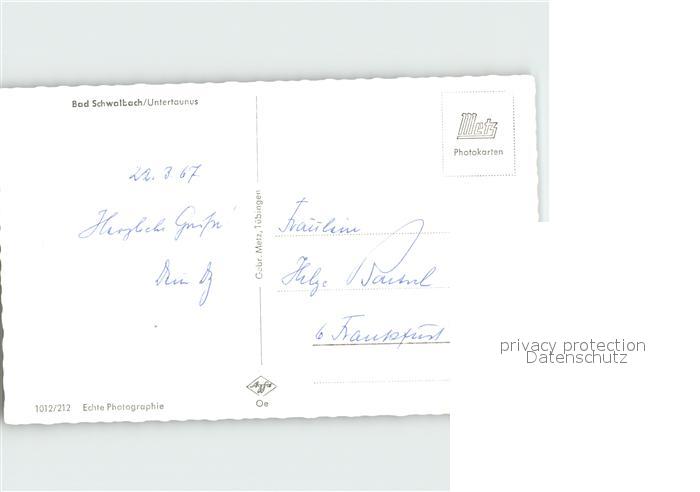 Bad Schwalbach/Untertaunus
22. 3. 67
Herzliche Grüße
Dein
Gebr. Metz, Tübingen
Metz
Photokarten
Fräulein
Helge
6 Frankfurt
Agfa
Oe
1012/212 Echte Photographie
privacy protection
Datenschutz